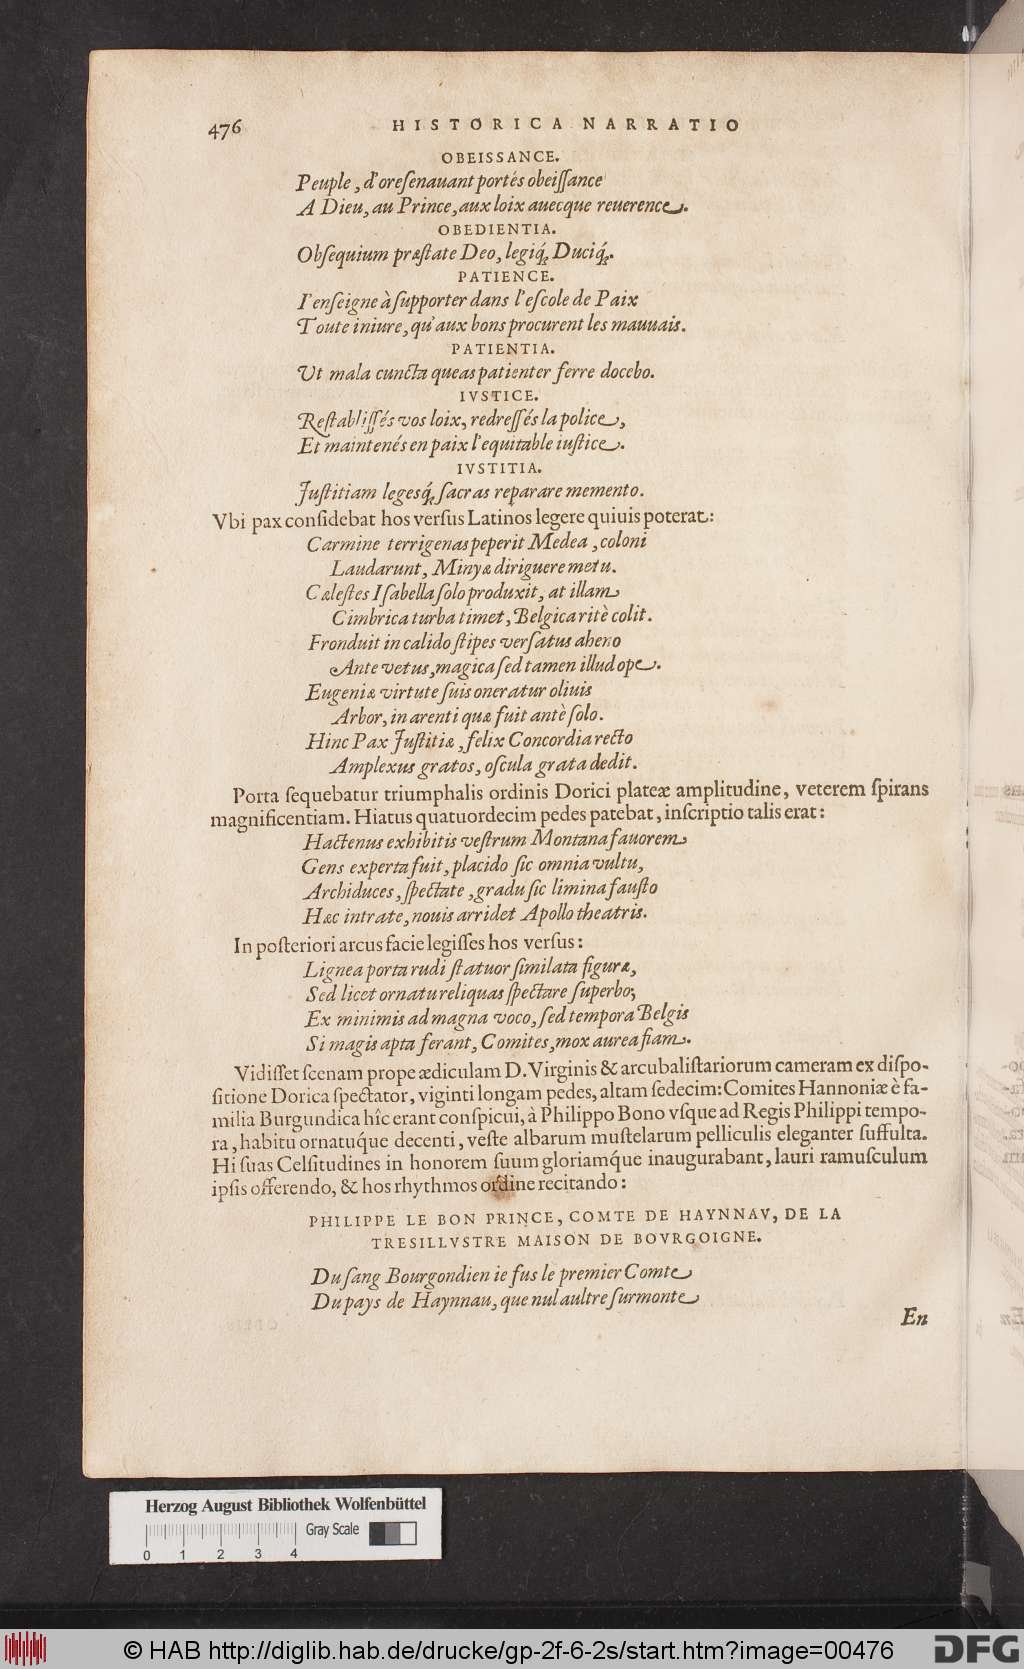 476 HISTORICA NARRATIO
OBEISSANCE.
Peuple, d'oreſenauant portés obeiſſance
A Dieu, au Prince, aux loix auecque reuerence.
OBEDIENTIA.
Obſequium præſtate Deo, legiq́; Duciq́;.
PATIENCE.
I'enſeigne à ſupporter dans l'eſcole de Paix
Toute iniure, qu'aux bons procurent les mauuais.
PATIENTIA.
Ut mala cuncta queas patienter ferre docebo.
IVSTICE.
Reſtabliſſés vos loix, redreſſés la police,
Et maintenés en paix l'equitable iuſtice.
IVSTITIA.
Juſtitiam legesq́; ſacras reparare memento.
Vbi pax conſidebat hos verſus Latinos legere quiuis poterat:
Carmine terrigenas peperit Medea, coloni
Laudarunt, Minyæ diriguere metu.
Cæleſtes Iſabella ſolo produxit, at illam
Cimbrica turba timet, Belgica ritè colit.
Fronduit in calido ſtipes verſatus aheno
Ante vetus, magica ſed tamen illud ope.
Eugeniæ virtute ſuis oneratur oliuis
Arbor, in arenti quæ fuit antè ſolo.
Hinc Pax Juſtitiæ, felix Concordia recto
Amplexus gratos, oſcula grata dedit.
Porta ſequebatur triumphalis ordinis Dorici plateæ amplitudine, veterem ſpirans
magnificentiam. Hiatus quatuordecim pedes patebat, inſcriptio talis erat:
Hactenus exhibitis veſtrum Montana fauorem
Gens experta fuit, placido ſic omnia vultu,
Archiduces, ſpectate, gradu ſic limina fauſto
Hæc intrate, nouis arridet Apollo theatris.
In poſteriori arcus facie legiſſes hos verſus:
Lignea porta rudi ſtatuor ſimilata figuræ,
Sed licet ornatu reliquas ſpectare ſuperbo;
Ex minimis ad magna voco, ſed tempora Belgis
Si magis apta ferant, Comites, mox aurea fiam.
Vidiſſet ſcenam prope ædiculam D. Virginis & arcubaliſtariorum cameram ex diſpo-
ſitione Dorica ſpectator, viginti longam pedes, altam ſedecim: Comites Hannoniæ è fa-
milia Burgundica hîc erant conſpicui, à Philippo Bono vſque ad Regis Philippi tempo-
ra, habitu ornatuque decenti, veſte albarum muſtelarum pelliculis eleganter ſuffulta.
Hi ſuas Celſitudines in honorem ſuum gloriamq́ue inaugurabant, lauri ramuſculum
ipſis offerendo, & hos rhythmos ordine recitando:
PHILIPPE LE BON PRINCE, COMTE DE HAYNNAV, DE LA
TRESILLVSTRE MAISON DE BOVRGOIGNE.
Du ſang Bourgondien ie fus le premier Comte
Du pays de Haynnau, que nul aultre ſurmonte
En
Herzog August Bibliothek Wolfenbüttel
Gray Scale
0 1 2 3 4
© HAB http://diglib.hab.de/drucke/gp-2f-6-2s/start.htm?image=00476
DFG